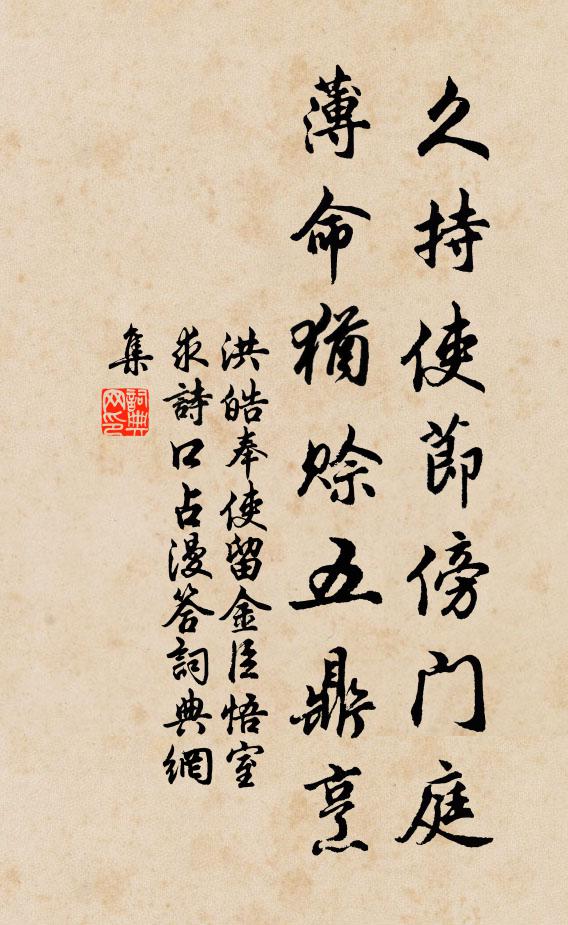 久持使節傍門庭
薄命猶賒五鼎烹
洪皓奉使留金臣悟室
求詩口占漫答詞典網
集
詞典网印